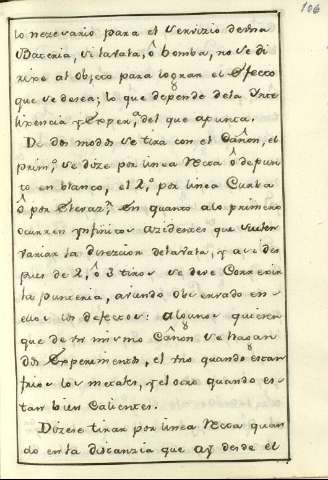 106
lo nezesario para el servizio desta
Bateria, si la vala, ô bomba, no se di
rixe al Objecto para lograr el efecto
que se desea; lo que depende dela Ynte
lixencia y Exper.ª del que apunta.
De dos modos se tira con el Cañon, el
prim.º se dize por linea Recta ô de pun
to en blanco, el 2.º por linea Curba
ô por Elevaz.n En quanto al primero
ocurren ynfinitos azidentes que suelen
variar la direczion dela vala, y asi des
pues de 2, ô 3 tiros se deve Correxir
la punteria, aviendo observado en
ellos los defectos: algunos quieren
que de un mismo Cañon se hagan
dos Experimentos, el uno quando estan
frios los metales, y el otro quando es-
tan bien Calientes.
Dizese tirar por linea Recta quan
do en la distanzia que ay desde el